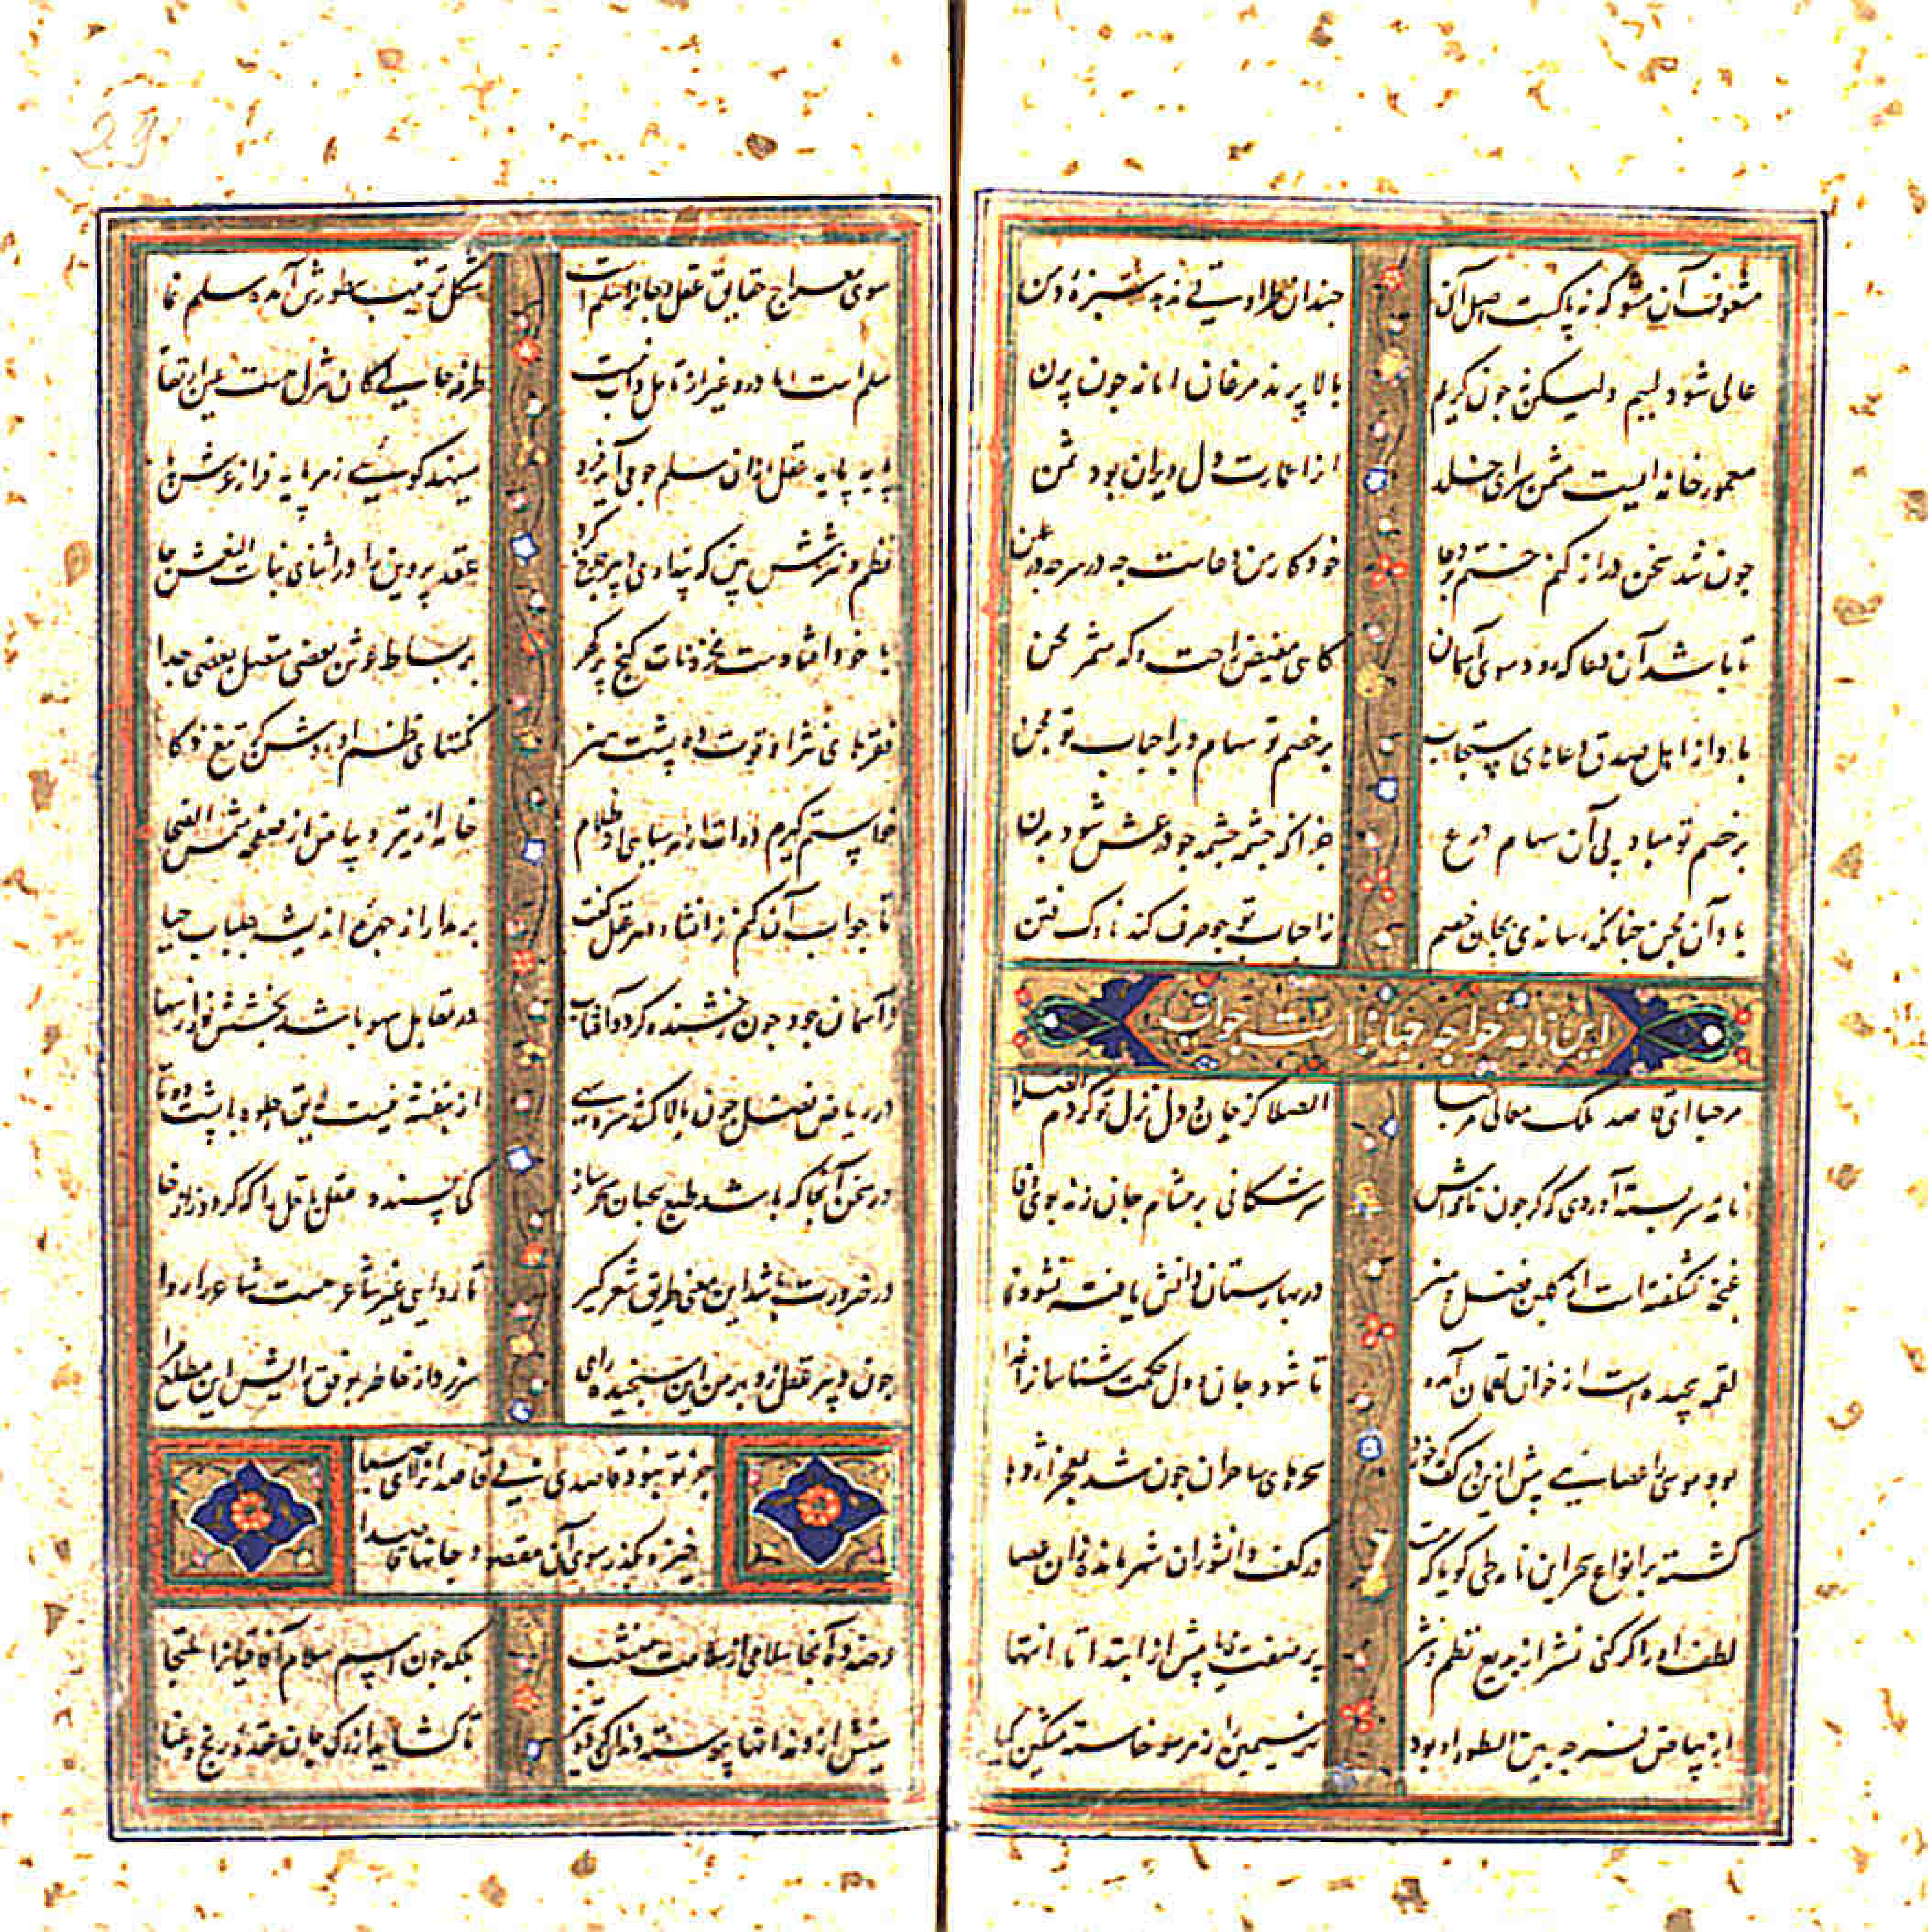 مشعوف آن مشو که نه پاکست اصل آن
چندان طراوتی نه به سبزهٔ دمن
عالی شود لییم ولیکن نه چون کریم
بالا پرند مرغان اما نه چون پرن
معمور خانه ایست مثمن سرای خلد
از عمارت دل ویران بود ثمن
چون شد سخن دراز کنم ختم بر دعا
خود کار من دعاست چه در سر چه در علن
تا باشد آن دعا که رود سوی آسمان
گاهی مفیض راحت و گه مثمر محن
باد از اهل صدق دعاهای مستجاب
بر خصم تو سهام و بر احباب تو مجن
بر خصم تو مباد پی آن سهام درع
جز آنکه چشمه چشمه چو درعش شود بدن
باد آن مجن چنانکه رسانه‌ی بجان خصم
ز احباب تو چو صرف کند ناوک فتن
این نامه خواجه جهانرا است جواب
مرحبا ای قاصد ملک معالی مرحبا
الصلا کز جان و دل نزل تو کردم الصلا
نامهٔ سربسته آوردی که گر چون نافه‌اش
سر شکافی بر مشام جان زند بوی وفا
غنچهٔ نشکفته است از گلبن فضل و هنر
در بهارستان دانش یافته نشو و نما
لقمهٔ پیچیده است از خوان لقمان آمده
تا شود جان و دل حکمت شناسانرا غذا
بود موسی را عصایی پیش ازین در کف کزو
سحرهای ساحران چون شد بمعجز اژدها
گشته بر انواع سحر این نامه طی گویا که هست
در کف دانشوران شهر مانده زان عصا
لطف او را گر کنی نشر از بدیع نظم و نثر
پر صنعت یابیش از ابتدا تا انتها
ور بیاض نسر چه بین السطور او بود
نهر سیمین را ز هر سو خاسته مشکین گیا
29
سوی معراج حقایق عقل و جانرا سلم است
شکل ترتیب سطورش آمده سلم نما
سلم است اما درو غیر از تنزل باب نیست
طرفه حالی کان تنزل هست عین ارتقا
پایه پایه عقل ازان سلم چو می‌آید فرود
می‌نهد گویی ز هر پایه فراز عرش پا
نظم و نثرش بین که پنداری دبیر چرخ کرد
عقد پروین را در اثنای بنات النعش جا
یا خود افتادست مخزونات گنج پر گهر
بر بساط عرش بعضی متصل بعضی جدا
فقره‌های نثر او قوت ده پشت هنر
نکتهای نظم او روشن کن تیغ ذکا
خواستم گیرم دوات از سیاهی ظلام
خامه از تیر و بیاض از صفحهٔ شمس الضحا
تا جواب آن کنم ز انشاد هر عقل گفت
بر مدار از چهرهٔ اندیشه جلباب حیا
ز آسمان جود چون رخشنده گردد آفتاب
در تقابل سهو باشد بخشش نور از سها
در ریاض فضل چون بالا کند سرو سهی
از بنفشه نیست لایق جلوه با پشت دوتا
در سخن آنجا که باشد طبع سحبان سحر ساز
کی پسندد عقل باقل را که گردد ژاژخا
ور ضرورت باشد این معنی طریق شعر گیر
ناروایی غیر شاعر هست شاعر را روا
چون دبیر عقل زد بر من این سنجیده رای
سر زد از خاطر بوفق رایش این مطلع مرا
جز تو نبود قاصدی نی قاصدان را ای صبا
خیز و بگذر سوی آن مقصود جانها قاصدا
عرضه ده آنجا سلامی از سلامت منشعب
بلکه چون اسم سلام آفاتیانرا ملتجا
سینش از دندانها پیوسته دندان کرده تیز
تا گشاید از رگ جان عقدهٔ رنج و عنا